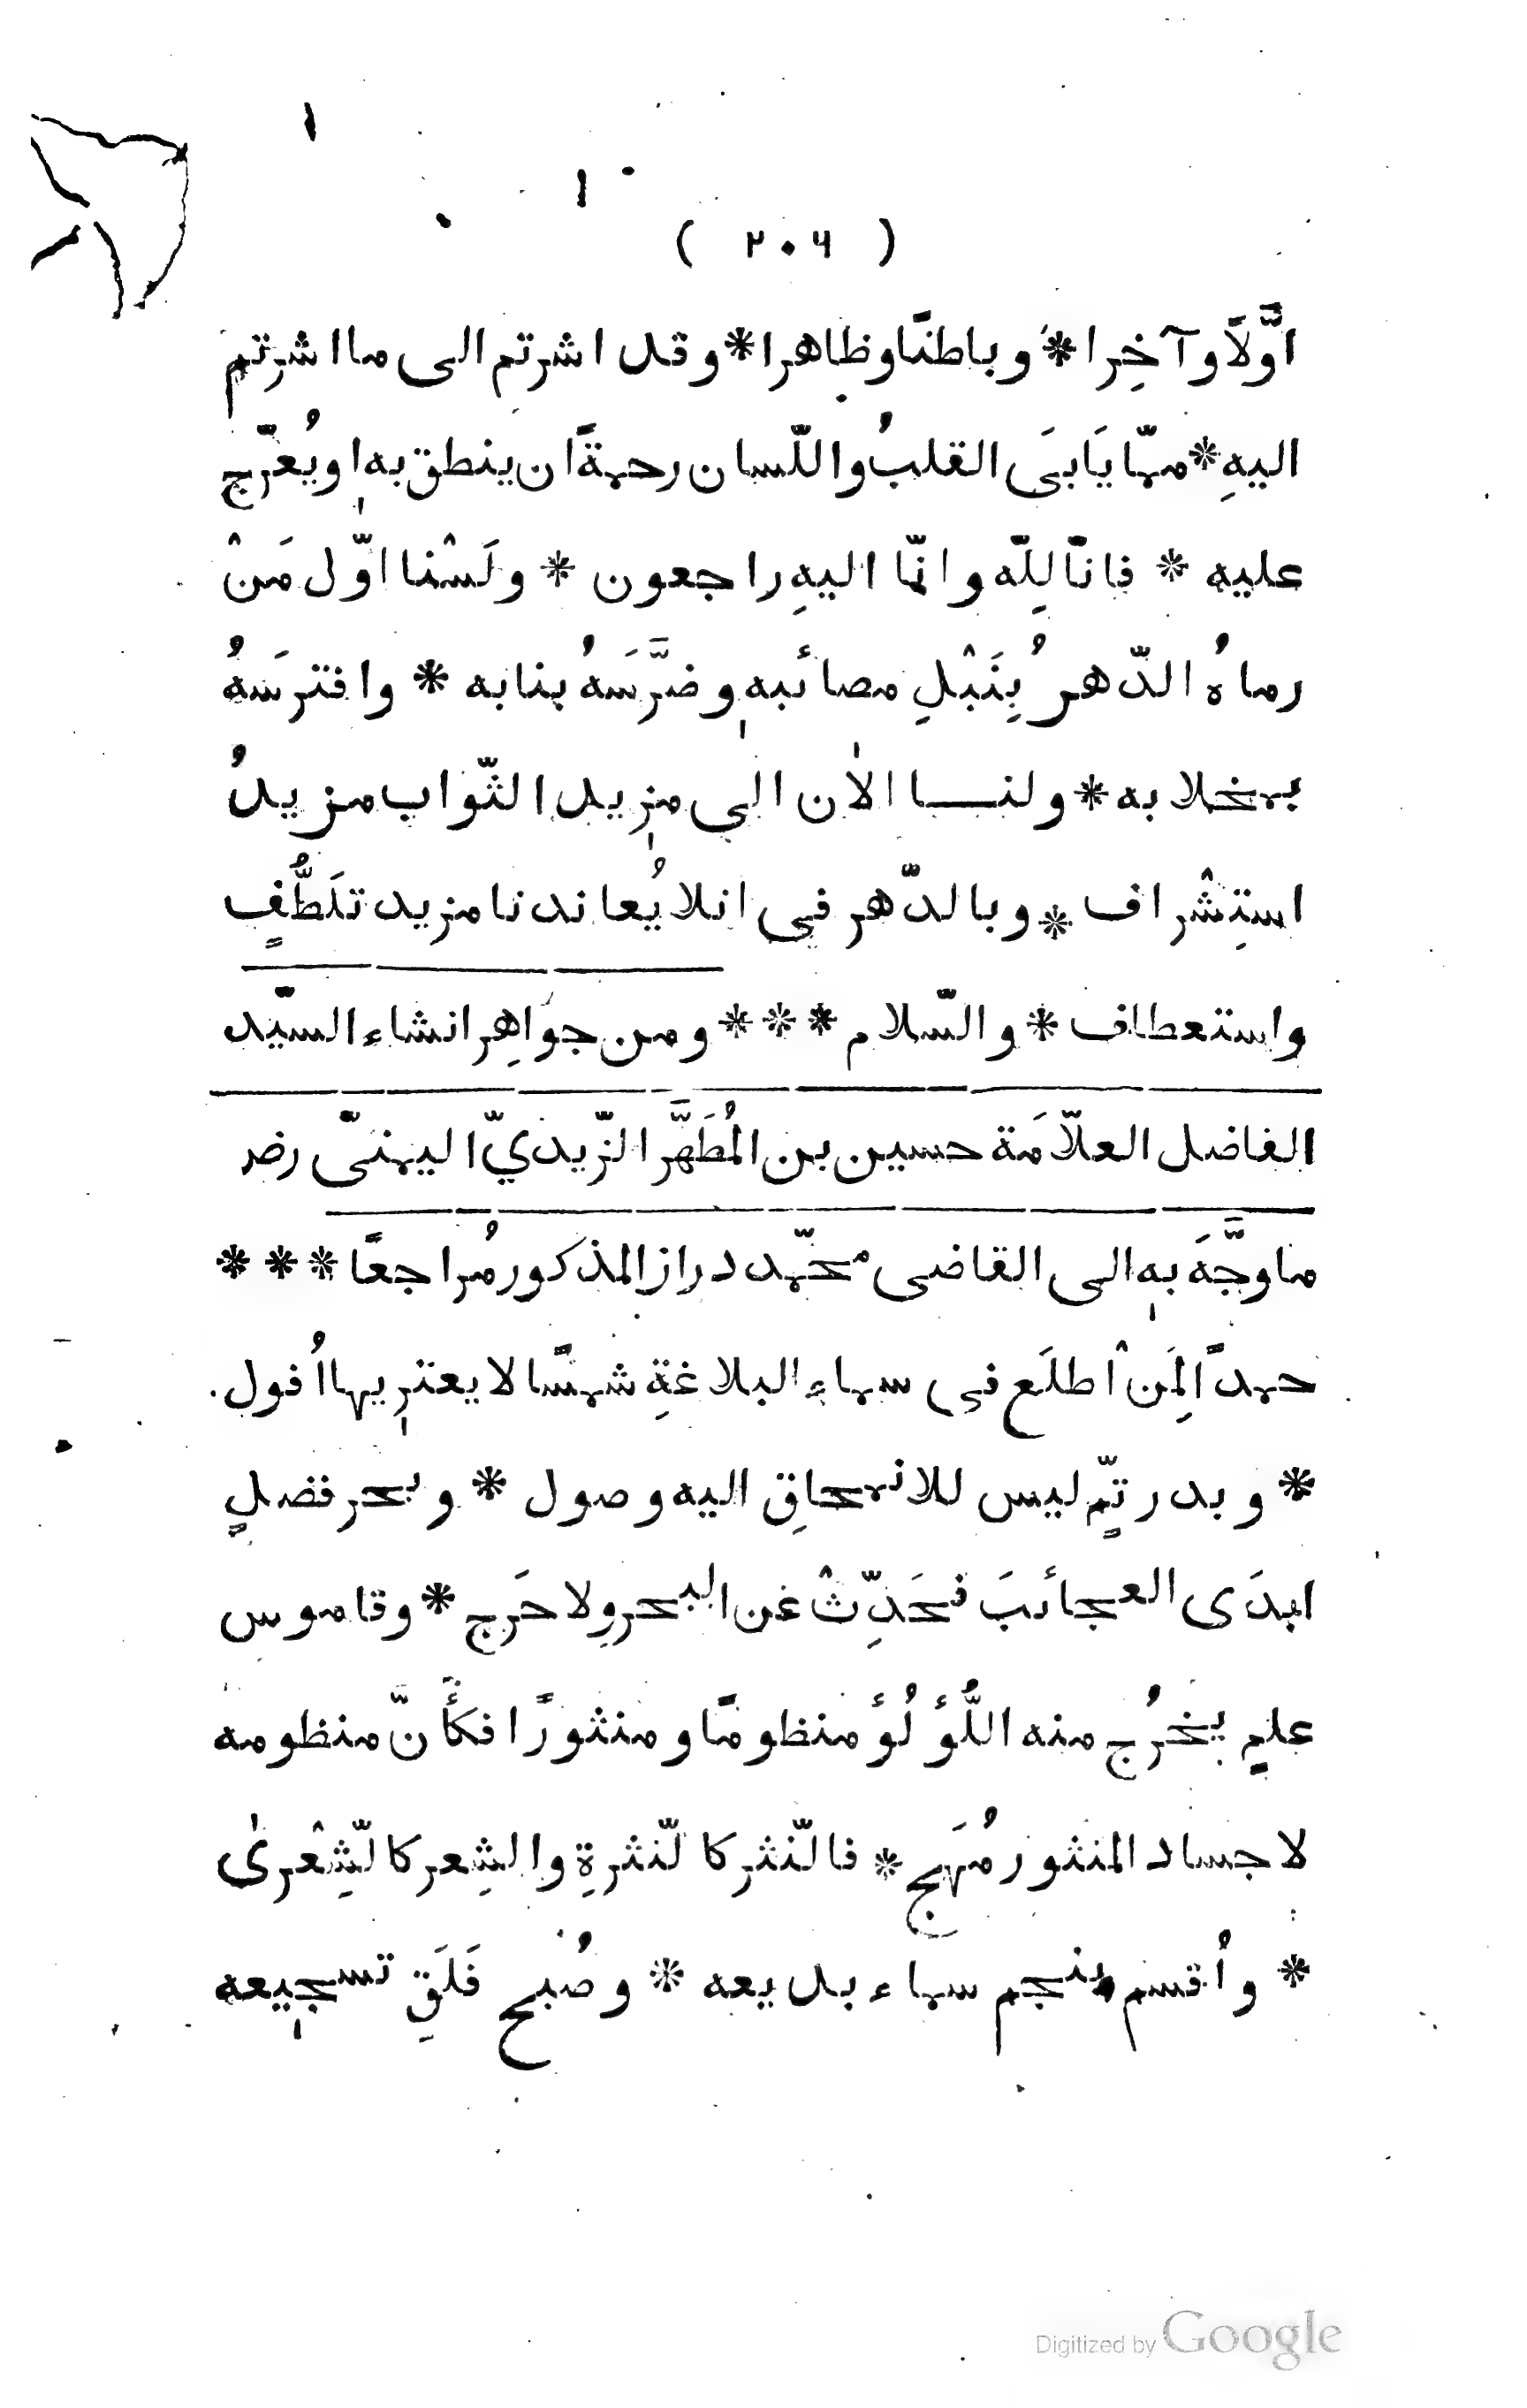 ( ٢٠٦ )
اوَّلًا وآخِرا * وباطنًا وظاهرا * وقد اشرتم الى ما اشرتم
اليهِ * ممّا يَابىَ القلبُ واللّسان رحمةً ان ينطق بهٖ او يُعرّج
عليه * فانّا لِلّه وانّا اليهِ راجعون * ولَسْنا اوّل مَنْ
رماهُ الدّهرُ بِنَبْلِ مصائبهٖ وضرَّسَهُ بنابه * وافترسَهُ
بمخلابه * ولنا الاٰن الى مزيد الثّواب مزيدُ
استِشْراف * وبالدّهر في انلا يُعاندنا مزيد تلَطُّفٍ
واستعطاف * والسّلام * * * ومن جوَاهِر انشاء السيّد
الفاضل العلاّمَة حسين بن المُطَهَّر الزّيديّ اليمنىّ رضـ
ما وجَّهَ بهٖ الى القاضى محمّد دراز المذكور مُراجعًا * * *
حمداً لِمَنْ اطلَع في سماءِ البلاغةِ شمسًا لا يعتريها اُفول
* وبدر تمٍّ ليس للانمحاقِ اليه وصول * وبحر فضلٍ
ابدَى العجائبَ فحَدِّثْ عَن البحرِ ولا حَرج * وقاموس
علمٍ يخرُج منه اللُّؤلُؤ منظومًا ومنثورًا فكأَنّ منظومه
لاجساد المنثور مُهَج * فالنّثر كالنّثرةِ والشِعر كالشِّعْرىٰ
* واُقسم بنجم سماء بديعه * وصُبح فَلَقِ تسجيعه
Digitized by Google